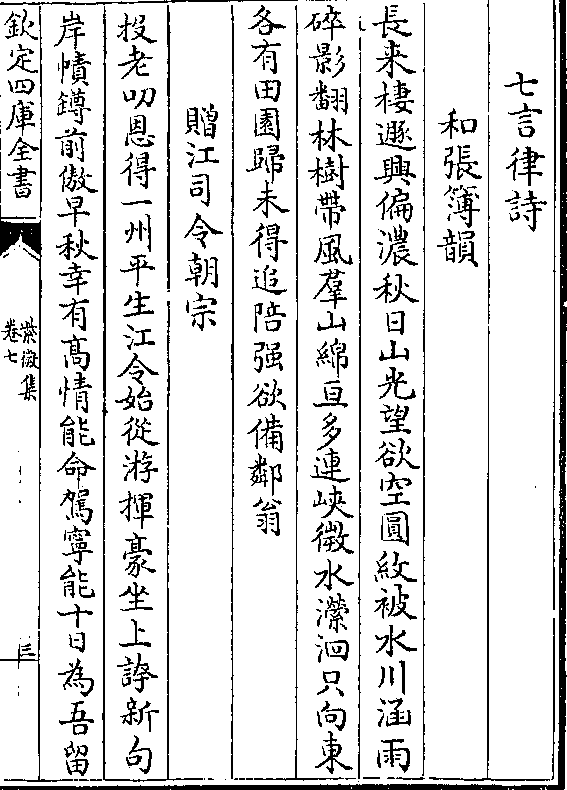 七言律詩
和張簿韻
長来棲遯興偏濃秋日山光望欲空圓紋被水川涵雨
碎影翻林樹帶風羣山綿亘多連峽微水瀠洄只向東
各有田園歸未得追陪强欲備鄰翁
贈江司令朝宗
投老叨恩得一州平生江令始從游揮豪坐上誇新句
岸幘鐏前傲早秋幸有髙情能命駕寧能十日為吾留
欽定四庫全書
紫微集
卷七
三